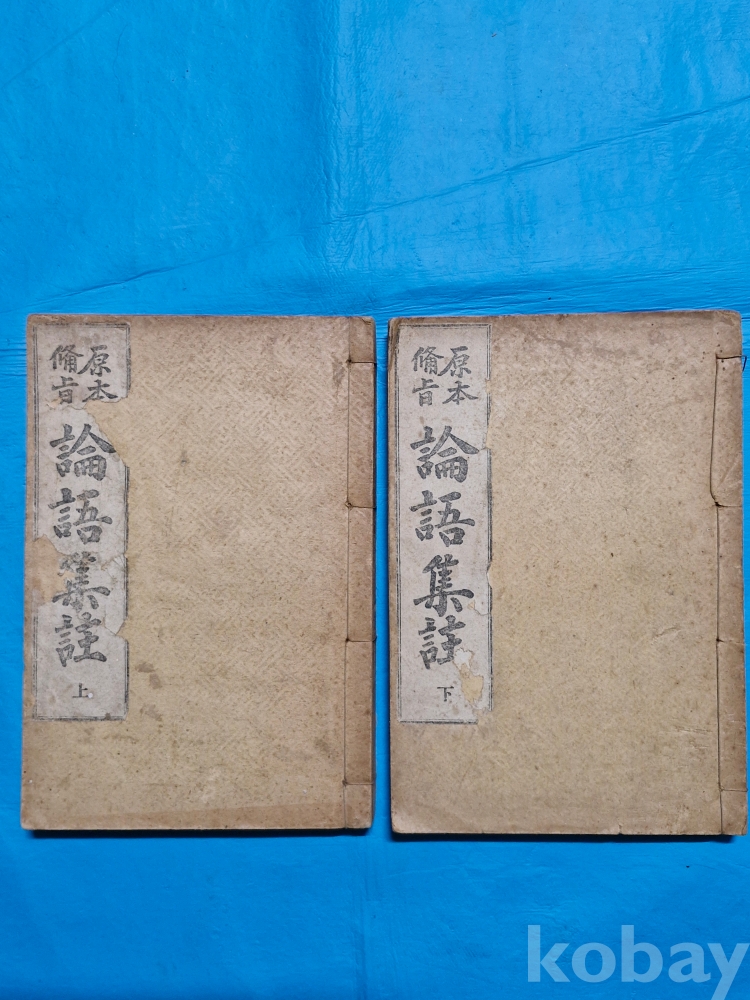 原本
備旨
論語集註
上
原本
備旨
論語集註
下
kobay